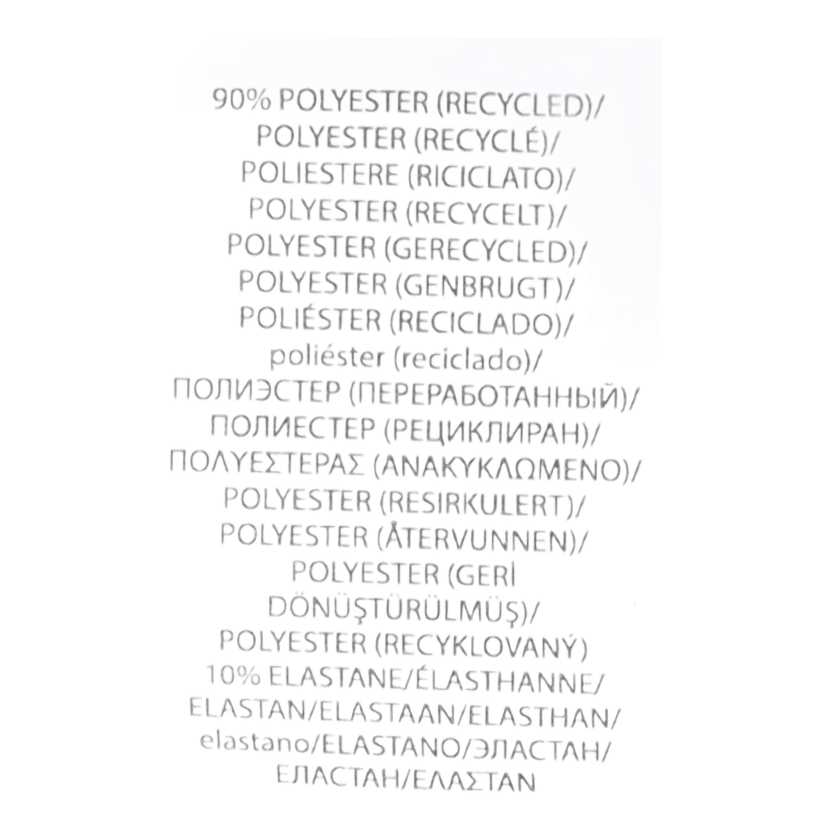 90% POLYESTER (RECYCLED)/
POLYESTER (RECYCLÉ)/
POLIESTERE (RICICLATO)/
POLYESTER (RECYCELT)/
POLYESTER (GERECYCLED)/
POLYESTER (GENBRUGT)/
POLIÉSTER (RECICLADO)/
poliéster (reciclado)/
ПОЛИЭСТЕР (ПЕРЕРАБОТАННЫЙ)/
ПОЛИЕСТЕР (РЕЦИКЛИРАН)/
ΠΟΛΥΕΣΤΕΡΑΣ (ΑΝΑΚΥΚΛΩΜΕΝΟ)/
POLYESTER (RESIRKULERT)/
POLYESTER (ÅTERVUNNEN)/
POLYESTER (GERİ
DÖNÜŞTÜRÜLMÜŞ)/
POLYESTER (RECYKLOVANÝ)
10% ELASTANE/ÉLASTHANNE/
ELASTAN/ELASTAAN/ELASTHAN/
elastano/ELASTANO/ЭЛАСТАН/
ЕЛАСТАН/ΕΛΑΣΤΑΝ